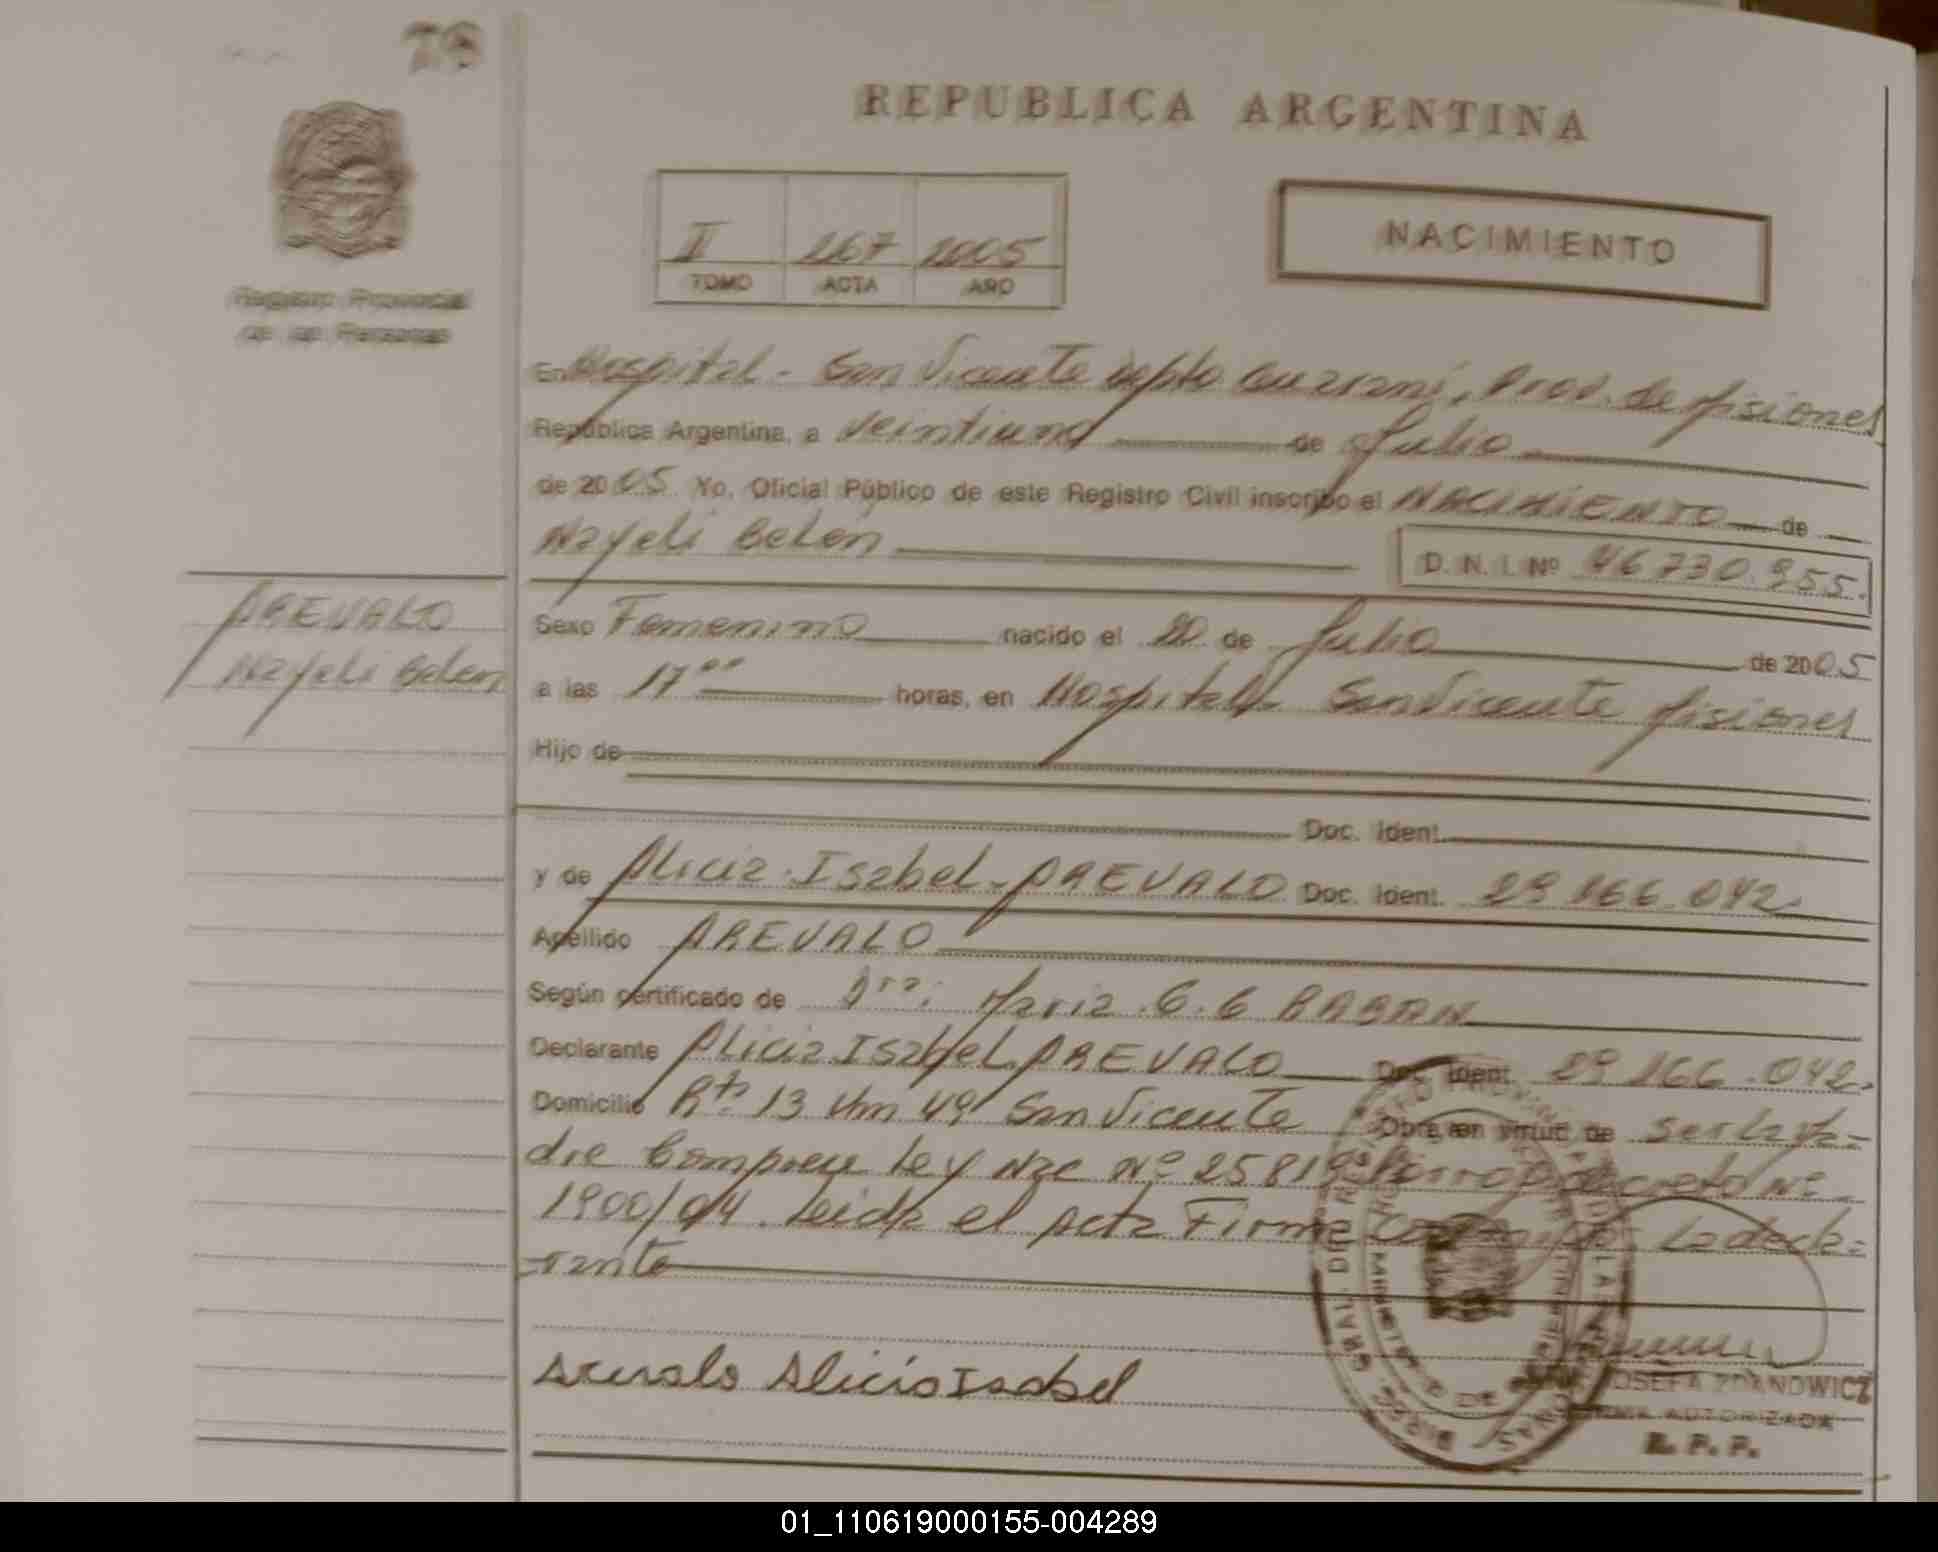 78
REPUBLICA ARGENTINA
NACIMIENTO
II 267 2005
TOMO ACTA AÑO
Registro Provincial
de las Personas
En Hospital - San Vicente Depto Guarani, Prov. de Misiones
República Argentina, a veintiuno de Julio
de 2005 Yo, Oficial Público de este Registro Civil inscribo el NACIMIENTO de
Nayeli Belén
D. N. I. Nº 46 730.955.
AREVALO
Nayeli Belen
Sexo Femenino nacido el 20 de Julio de 2005
a las 17 00 horas, en Hospital - San Vicente Misiones
Hijo de
Doc. Ident.
y de Alicia Isabel - AREVALO Doc. Ident. 29 166 042.
Apellido AREVALO
Según certificado de Dra: Maria G. G
Declarante Alicia Isabel AREVALO Doc. Ident. 29 166.042.
Domicilio Rta 13 Km 49 San Vicente Obra en virtud de ser la Ma=
dre Ley Nac Nº 25819 Decreto Nº
1900/04. Leida el Acta Firma la decla=
rante
Arevalo Alicia Isabel
JOSEFA ZDANOWICZ
FIRMA AUTORIZADA
R. P. P.
01_110619000155-004289